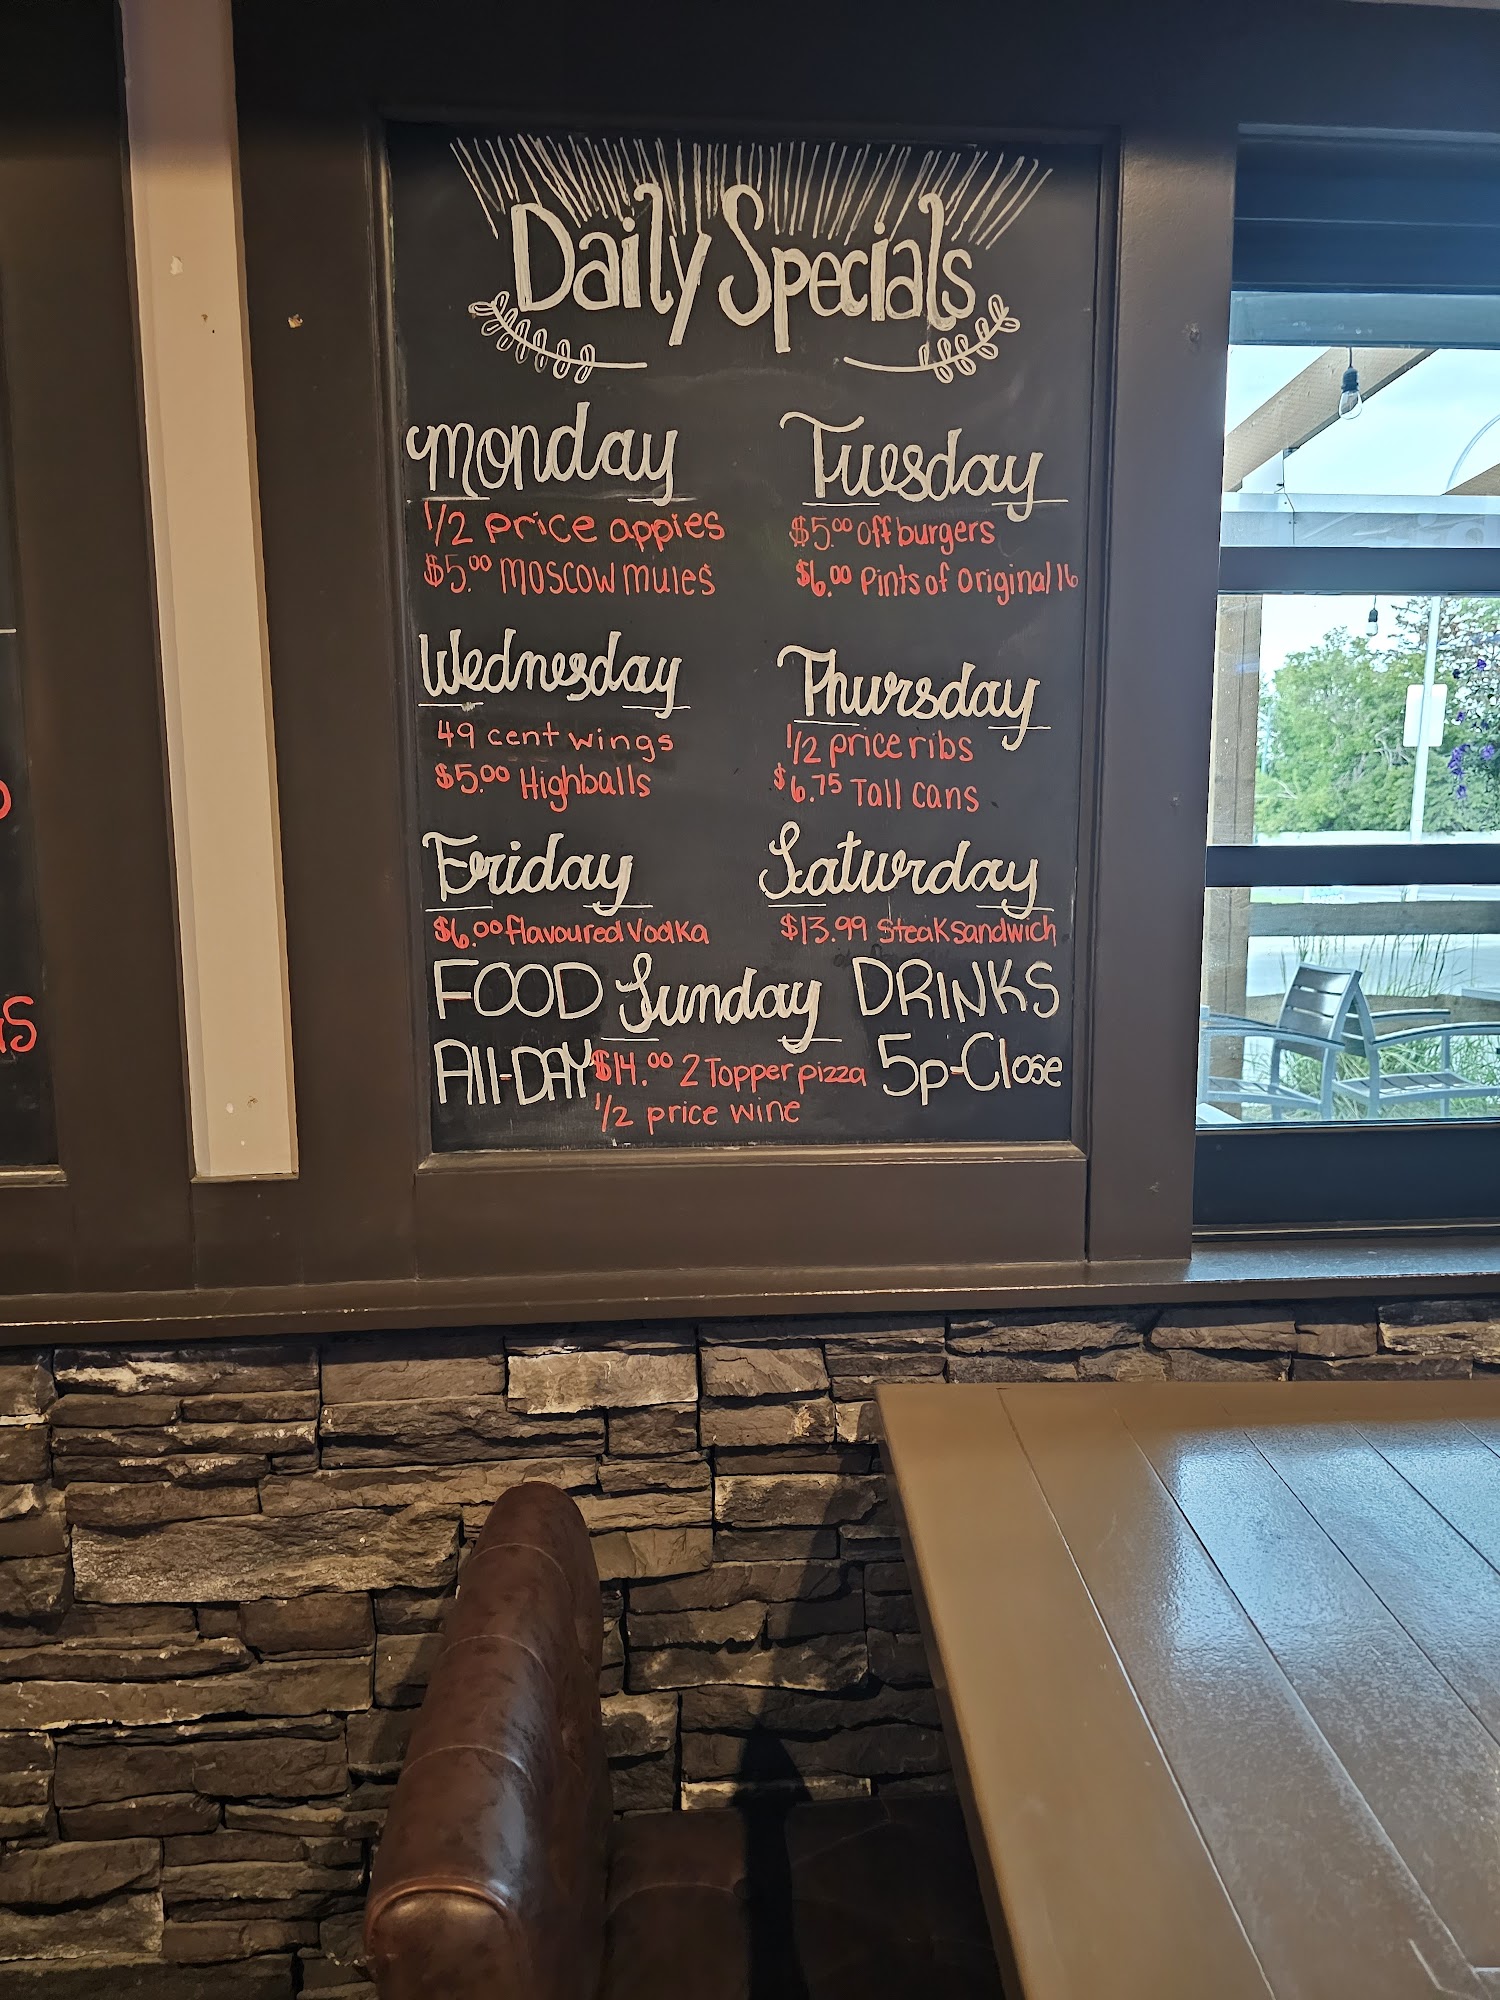 Daily Specials
Monday
1/2 price appies
$5.00 Moscow mules
Tuesday
$5.00 off burgers
$6.00 Pints of Original 16
Wednesday
49 cent wings
$5.00 Highballs
Thursday
1/2 price ribs
$6.75 Tall cans
Friday
$6.00 flavoured Vodka
Saturday
$13.99 Steak sandwich
FOOD
All-DAY
Sunday
$14.00 2 Topper pizza
1/2 price wine
DRINKS
5p-Close